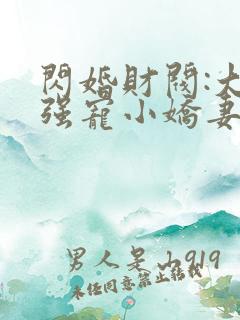 閃婚財閥:大
强寵小嬌妻
男人吴山919
未经同意禁止转载